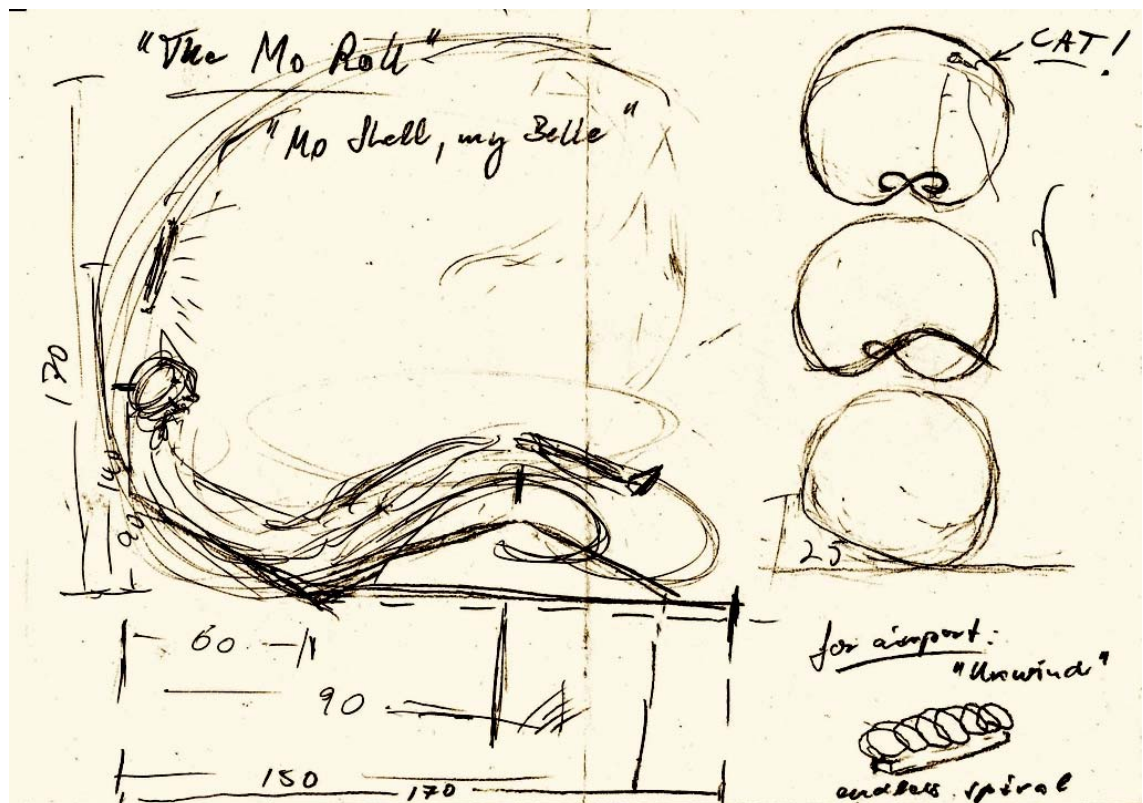 "The Mo Roll"
"Mo Shell, my Belle"
CAT!
170
140
25
60
90
150
170
for airport:
"Unwind"
endless spiral